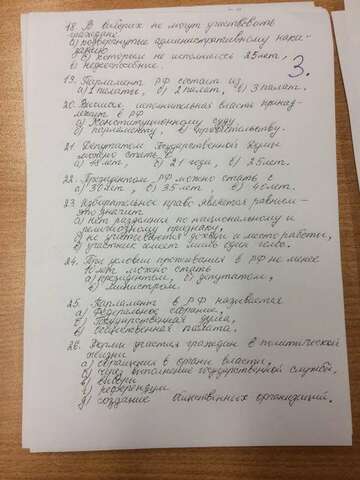 18. В выборах не могут участвовать
граждане
а) подвергнутые административному нака-
занию
б) которым не исполнилось 25 лет,
в) недееспособные.
3.
19. Парламент РФ состоит из
а) 1 палаты, б) 2 палат, в) 3 палат.
20. Высшая исполнительная власть принад-
лежит в РФ
а) Конституционному суду
б) парламенту, в) правительству.
21. Депутатом Государственной Думы
можно стать с
а) 18 лет, б) 21 года, в) 25 лет.
22. Президентом РФ можно стать с
а) 30 лет, б) 35 лет, в) 40 лет.
23. Избирательное право является равным -
это значит
а) нет разделения по национальному и
религиозному признаку,
б) не учитывается доход и место работы,
в) участник имеет лишь один голос.
24. При условии проживания в РФ не менее
10 лет можно стать
а) президентом, б) депутатом,
в) министром.
25. Парламент в РФ называется
а) Федеральное собрание,
б) Государственная дума,
в) Общественная палата.
26. Формы участия граждан в политической
жизни
а) обращения в органы власти,
б) через выполнение государственной службы,
в) выборы
г) референдум
д) создание общественных организаций.